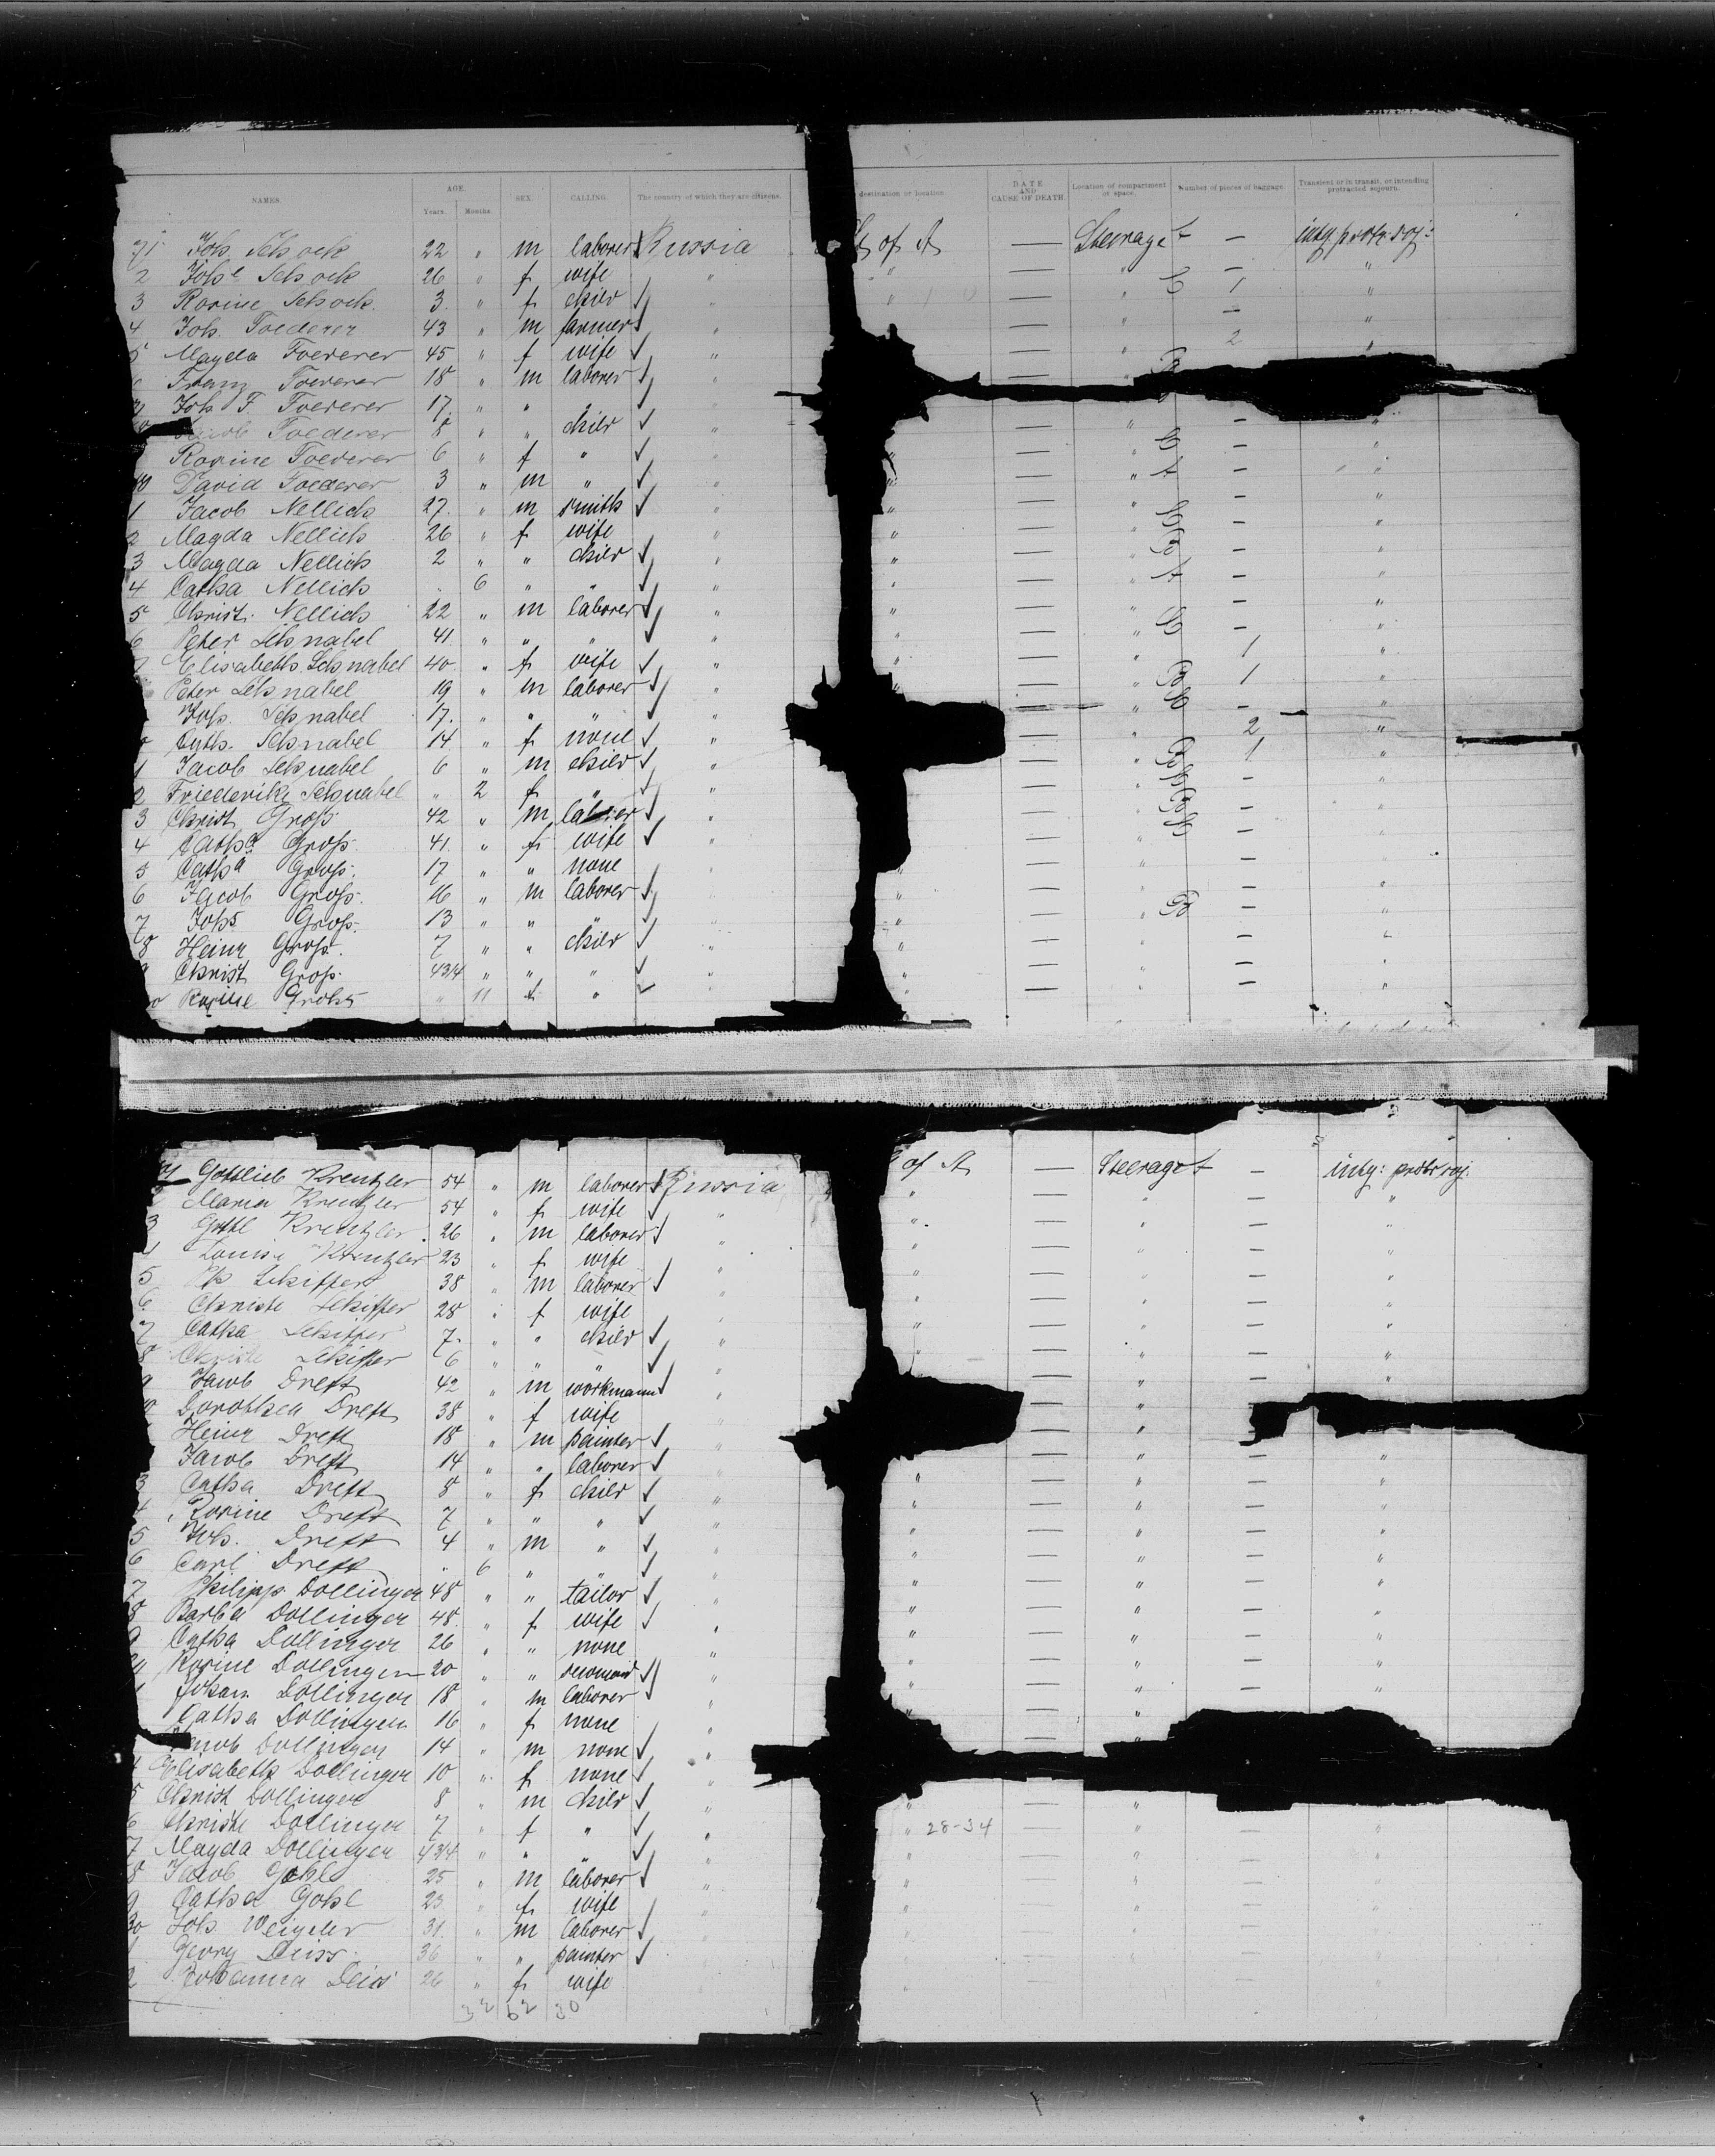 NAMES. AGE. Years. Months. SEX. CALLING. The country of which they are citizens. destination or location. DATE AND CAUSE OF DEATH. Location of compartment or space. Number of pieces of baggage. Transient or in transit, or intending protracted sojourn.
71 Joh Schock 22 " m laborer Russia of A — Steerage — intg. protr. soj:
2 Johe Schock 26 " f wife " " — " C 1 "
3 Rosine Schock 3 " f child " " — " — "
4 Joh. Foederer 43 " m farmer " — " 2 "
5 Magda Foederer 45 " f wife " — "
Franz Foederer 18 " m laborer "
Joh F Foederer 17 " " "
Jacob Foederer 8 " " child " — " — "
Rosine Foederer 6 " f " " " — " C — "
David Foederer 3 " m " " " — " A — "
1 Jacob Nellich 27 " m smith " " — " — "
2 Magda Nellich 26 " f wife " " — " — "
3 Magda Nellich 2 " " child " " — " — "
4 Catha Nellich " 6 " " " " — " A — "
5 Christ. Nellich 22 " m laborer " " — " — "
6 Peter Schnabel 41 " " " " " — " C — "
Elisabeth Schnabel 40 " f wife " " — " 1 "
Peter Schnabel 19 " m laborer " " — " 1 "
Joh. Schnabel 17 " " " " — " — "
Cath. Schnabel 14 " f none " — " 2 "
1 Jacob Schnabel 6 " m child " — " 1 "
2 Friederike Schnabel " 2 f " " — " — "
3 Christ Gross 42 " m laborer " — " — "
4 Catha Gross 41 " f wife " — " — "
5 Catha Gross 17 " " none " " — " — "
6 Jacob Gross 16 " m laborer " " — " — "
7 Johs Gross 13 " " " " " — " B — "
8 Heinr Gross 7 " " child " " — " — "
Christ Gross 4 3/4 " " " " " — " — "
Rosine Gross " 11 f " " — " — "
Gottlieb Krentzler 54 " m laborer Russia of A — Steerage — intg: protr soj.
Maria Krentzler 54 " f wife " " — " — "
3 Gottl Krentzler 26 " m laborer " " — " — "
4 Louise Krentzler 23 " f wife " " — " — "
5 Ph Schiffer 38 " m laborer " " — " — "
6 Christe Schiffer 28 " f wife " " — " — "
7 Catha Schiffer 7 " " child " " — " — "
8 Christe Schiffer 6 " " " " " — " — "
9 Jacob Dreft 42 " m workmann " — " — "
Dorothea Dreft 38 " f wife " — "
Heinr Dreft 18 " m painter " — "
Jacob Dreft 14 " " laborer " — " — "
3 Catha Dreft 8 " f child " " — " — "
4 Rosine Dreft 7 " " " " " — " — "
5 Joh. Dreft 4 " m " " " — " — "
6 Carl Dreft " 6 " " " " — " — "
7 Philipp Dollinger 48 " " tailor " " — " — "
8 Barba Dollinger 48 " f wife " " — " — "
9 Catha Dollinger 26 " " none " " — " — "
Rosine Dollinger 20 " " " " — " — "
1 Johan Dollinger 18 " m laborer " " — " — "
Catha Dollinger 16 " f none " " — "
Jacob Dollinger 14 " m none " — "
Elisabeth Dollinger 10 " f none "
5 Christ Dollinger 8 " m child " " — "
6 Christe Dollinger 7 " f " " " 28-34 — " — "
7 Magda Dollinger 4 3/4 " " " " " — " — "
8 Jacob Gohl 25 " m laborer " " — " — "
9 Catha Gohl 23 " f wife " " — " — "
30 Joh Weigeler 31 " m laborer " " — " — "
1 Georg Deiss 36 " " painter " — " — "
2 Johanna Deiss 26 " f wife "
32 62 30